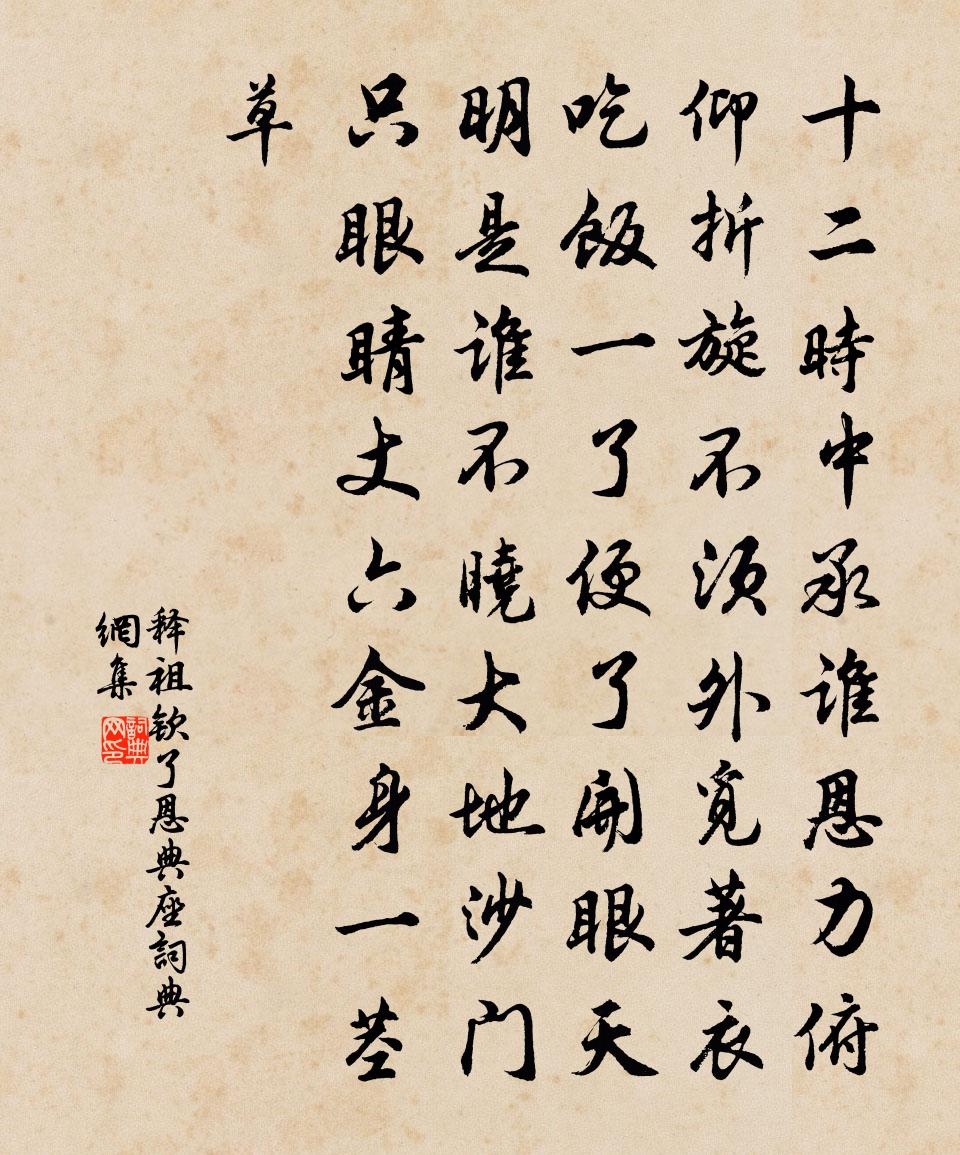 十二時中承谁恩力俯
仰折旋不须外覓著衣
吃飯一了便了開眼天
明是谁不曉大地沙门
只眼睛丈六金身一茎
草
释祖钦了恩典座詞典
網集
詞典
网印